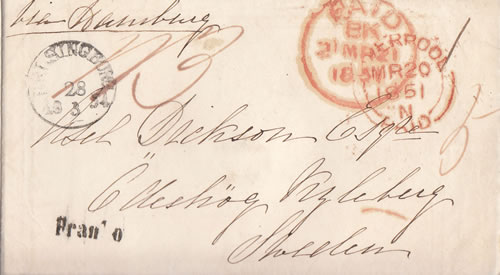 via Hamburg
HELSINGBORG
28
3
PAID
BK
21 MR 21
18
LIVERPOOL
MR20
1861
N
PAID
Axel Dickson Esqre
Ödeshög Kyleberg
Sweden
Fran'o